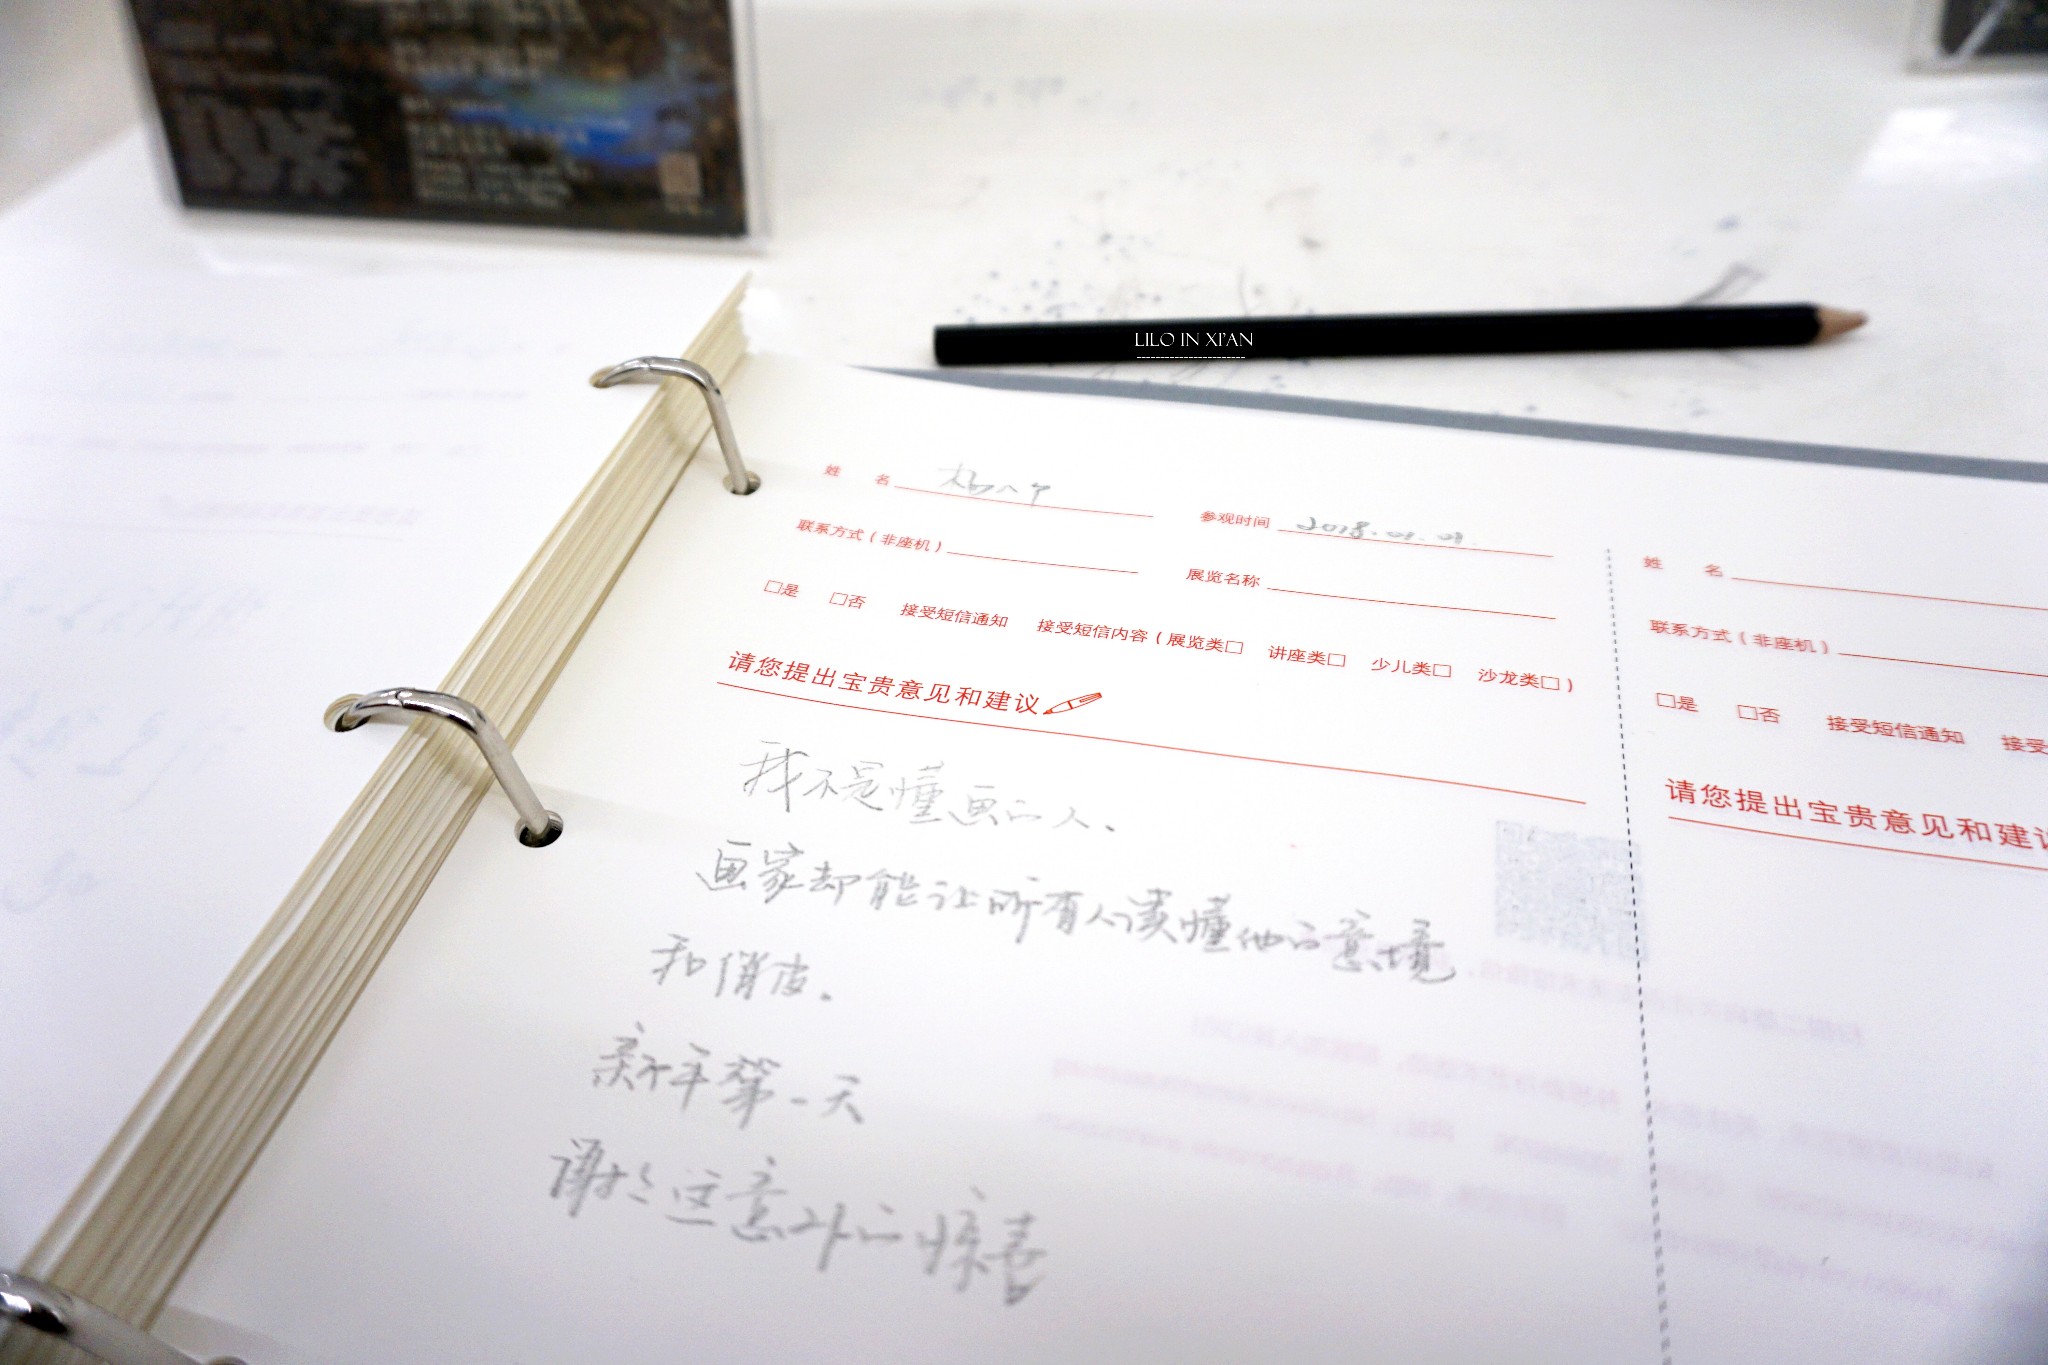 LILO IN XI'AN
姓 名
参观时间 2018.01.01.
联系方式（非座机）
展览名称
□是 □否 接受短信通知 接受短信内容（展览类□ 讲座类□ 少儿类□ 沙龙类□）
请您提出宝贵意见和建议
我不是懂画的人.
画家却能让所有人读懂他的意境
和俏皮.
新年第一天
谢谢这意外的惊喜
姓 名
联系方式（非座机）
□是 □否 接受短信通知 接受
请您提出宝贵意见和建议